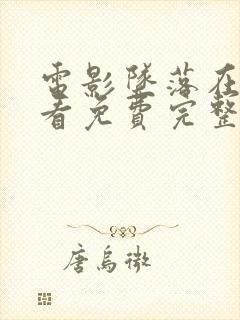 電影墜落在
看免費完整
唐烏微